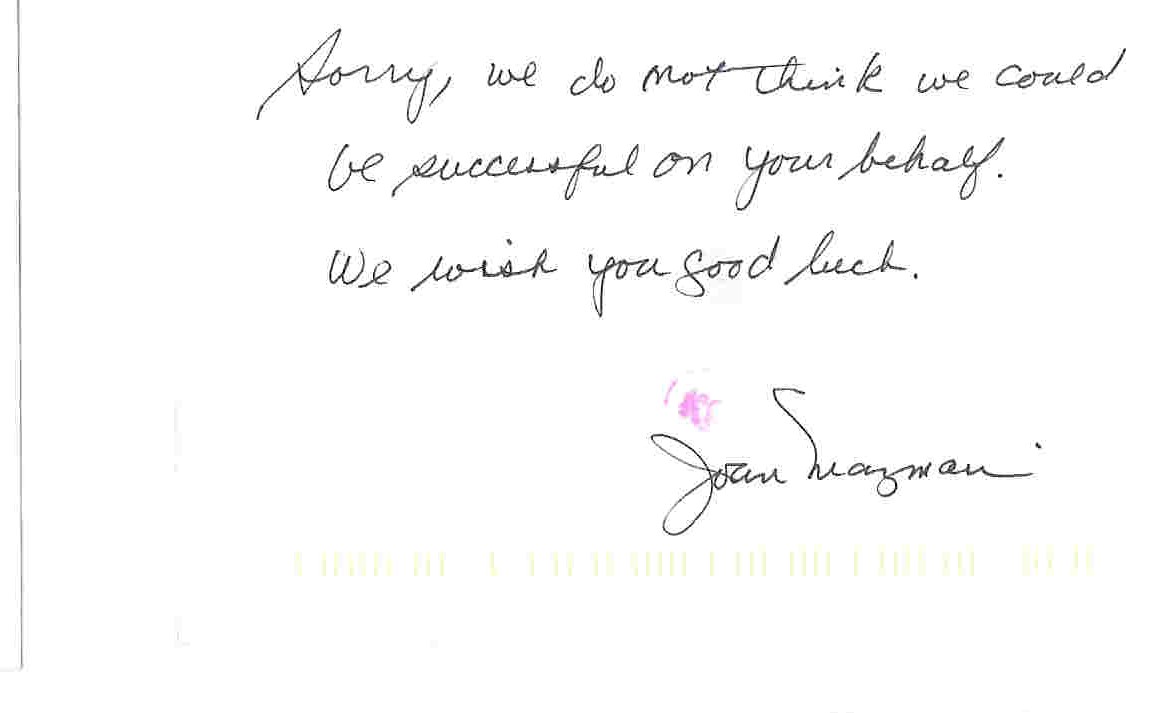 Sorry, we do not think we could
be successful on your behalf.
We wish you good luck.
Joan